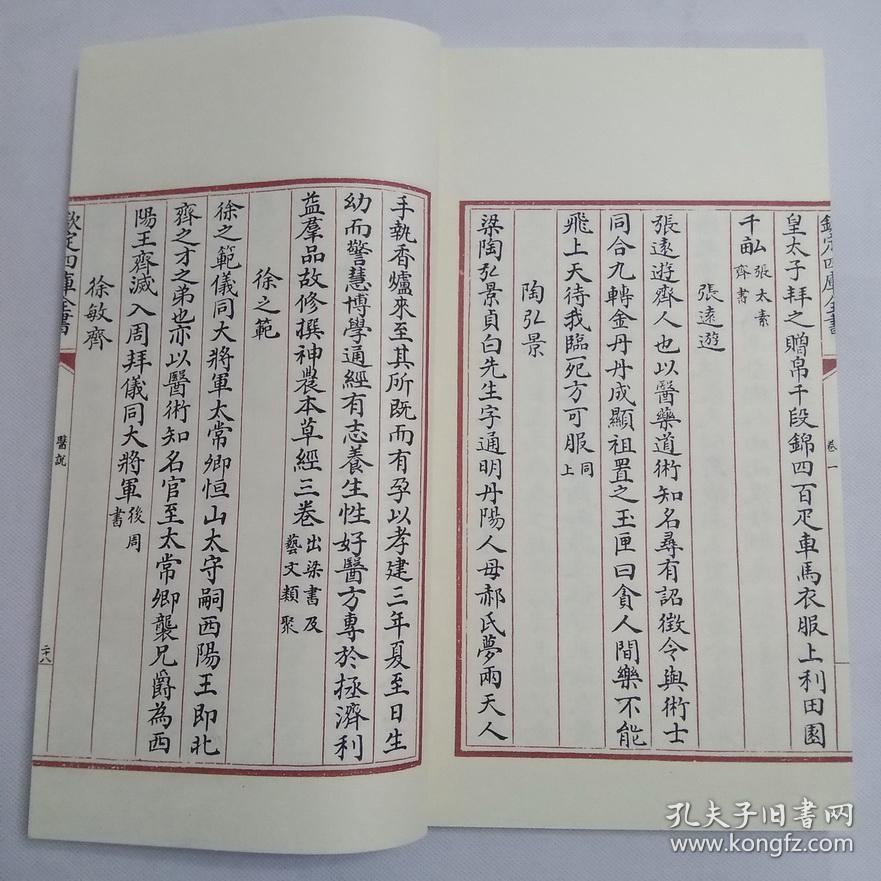 欽定四庫全書
卷一
皇太子拜之贈帛千段錦四百疋車馬衣服上利田園
千畝張太素齊書
張遠遊
張遠遊齊人也以醫藥道術知名尋有詔徵令與術士
同合九轉金丹丹成顯祖置之玉匣曰貪人間樂不能
飛上天待我臨死方可服同上
陶弘景
梁陶弘景貞白先生字通明丹陽人母郝氏夢兩天人
手執香爐來至其所既而有孕以孝建三年夏至日生
幼而警慧博學通經有志養生性好醫方專於拯濟利
益羣品故修撰神農本草經三卷出梁書及藝文類聚
徐之範
徐之範儀同大將軍太常卿恒山太守嗣西陽王即北
齊之才之弟也亦以醫術知名官至太常卿襲兄爵為西
陽王齊滅入周拜儀同大將軍後周書
徐敏齊
欽定四庫全書
醫說
二十八
孔夫子旧书网
www.kongfz.com